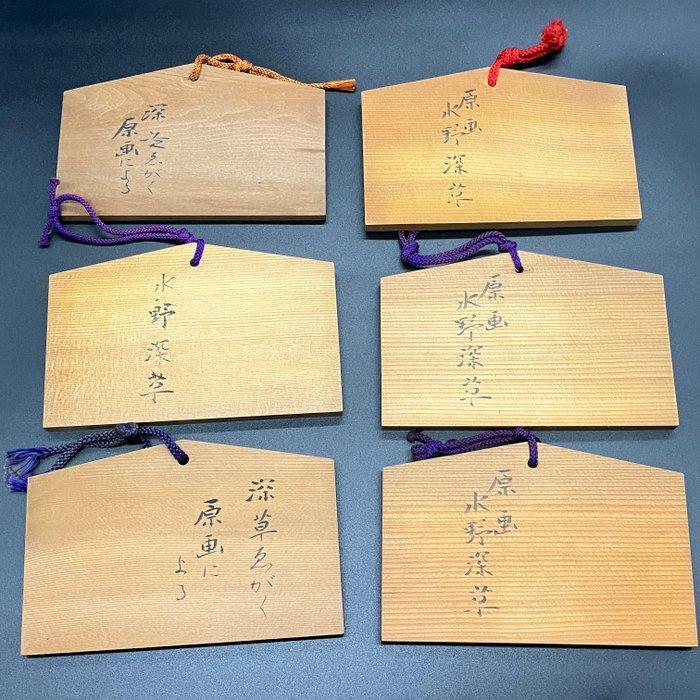 深草ゑがく
原画による
原画
水野深草
水野深草
原画
水野深草
深草ゑがく
原画に
よる
原画
水野深草